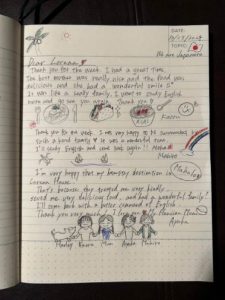 DATE:
TOPIC:
We are Japanese
Dear Lorman
Thank you for the week. I had a great time.
The host mother was really nice and the food was
delicious and she had a wonderful smile
It was like a family. I want to study English
more and go see you again. Thank you!
Kazou
Thank you for a week. I'm very happy to
such a kind family. It was a wonderful
I'll study English and come back again!!
Mahiro
I'm very happy that my homestay destination is
Lorman House.
That's because they treated me very kindly,
served me very delicious food, and had a wonderful family!
I'll come back with a better command of English.
Thank you very much, I love my Hawaiian Mom
Ayuka
Mom Ayuka Mahiro